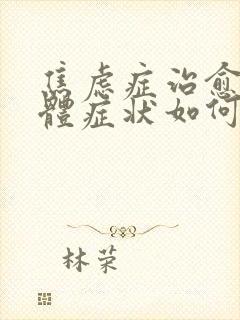 焦虑症治愈
體症状如何
林荣